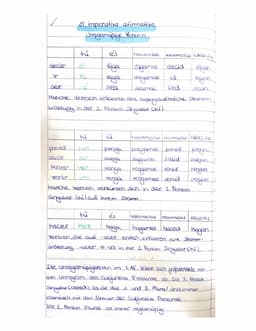 el imperativo afirmativo
Unregelmäßige Verben
tú él nosotros vosotros
decir diga digamos decid digan
ir vaya vayamos id vayan
ser sé sea seamos sed sean
Manche Verben
änderung in der 2. Person Singular (tú).
tú él nosotros vosotros
poner pon ponga pongamos poned pongan
salir sal salga salgamos salid salgan
tener ten tenga tengamos tened tengan
venir ven venga vengamos venid vengan
Manche Verben verkürzen sich in der 2. Person
Singular (tú) auf ihren Stamm.
tú él nosotros vosotros
hacer haz haga hagamos haced hagan
Verben, die auf -cer enden, erfahren eine Stamm-
änderung -cer → -z in der 2. Person Singular (tú).
Die Unregelmäßigkeiten im I.Af. lassen sich größtenteils von
den Unregeln des Subjuntivo Presente ab. Die 3. Person
Singular (usted) sowie die 1. und 3. Plural sind immer
identisch mit den Formen des Subjuntivo Presente.
Die 2. Person Plural ist immer regelmäßig